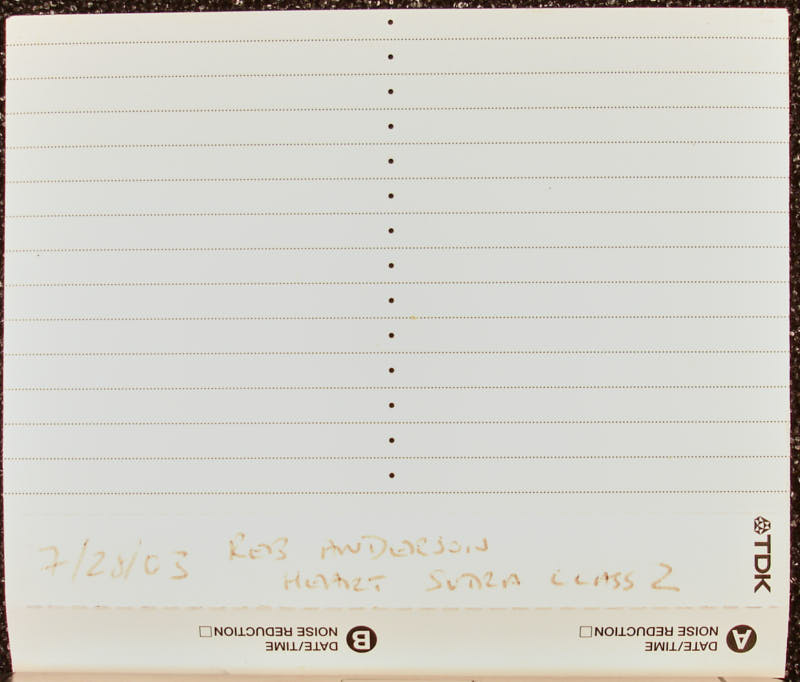 7/28/03 REB ANDERSON
HEART SUTRA CLASS 2
TDK
B DATE/TIME
NOISE REDUCTION
A DATE/TIME
NOISE REDUCTION